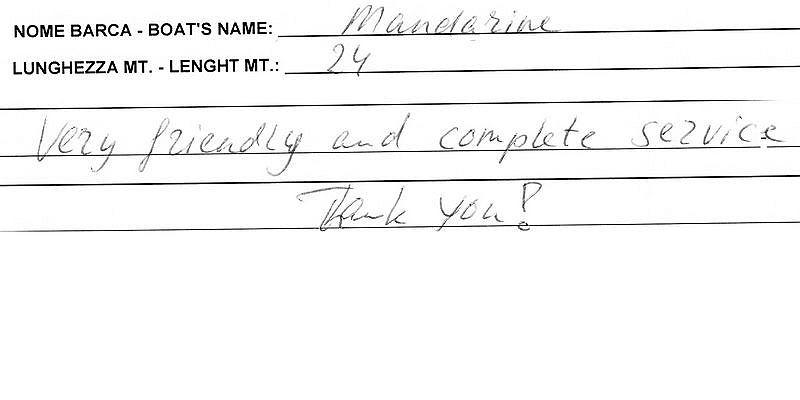 NOME BARCA - BOAT'S NAME: Mandarine
LUNGHEZZA MT. - LENGHT MT.: 24
Very friendly and complete service
Thank you!